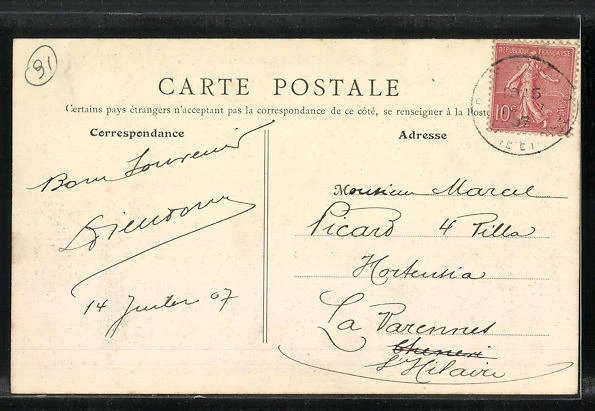 91
CARTE POSTALE
Certains pays étrangers n'acceptant pas la correspondance de ce côté, se renseigner à la Poste
Correspondance
Adresse
REPUBLIQUE FRANÇAISE
10c
Bon Souvenir
14 Juillet 07
Monsieur Marcel
Picard 4 Villa
Hortensia
La Varennes
St Hilaire